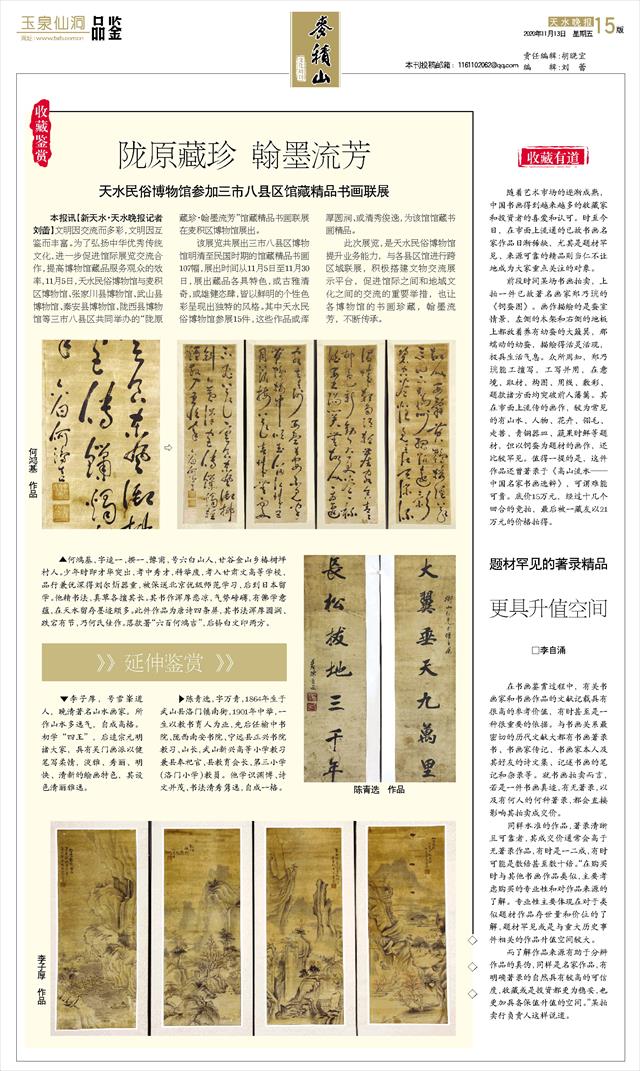 玉泉仙洞
品鉴
麥積山
天水晚报
15版
2020年11月13日 星期五
本刊投稿邮箱：1161102062@qq.com
责任编辑:胡晓宜
编 辑:刘 蕾
收藏鉴赏
陇原藏珍 翰墨流芳
天水民俗博物馆参加三市八县区馆藏精品书画联展
本报讯【新天水·天水晚报记者
刘蕾】文明因交流而多彩，文明因互
鉴而丰富。为了弘扬中华优秀传统
文化，进一步促进馆际展览交流合
作，提高博物馆藏品服务观众的效
率，11月5日，天水民俗博物馆与麦积
区博物馆、张家川县博物馆、武山县
博物馆、秦安县博物馆、陇西县博物
馆等三市八县区共同举办的“陇原
藏珍·翰墨流芳”馆藏精品书画联展
在麦积区博物馆展出。
该展览共展出三市八县区博物
馆明清至民国时期的馆藏精品书画
107幅，展出时间从11月5日至11月30
日，展出藏品各具特色，或古雅清
奇，或雄健恣肆，皆以鲜明的个性色
彩呈现出独特的风格。其中天水民
俗博物馆参展15件，这些作品或浑
厚圆润，或清秀俊逸，为该馆馆藏书
画精品。
此次展览，是天水民俗博物馆
提升业务能力，与各县区馆进行跨
区域联展，积极搭建文物交流展
示平台，促进馆际之间和地域文
化之间的交流的重要举措，也让
各博物馆的书画珍藏，翰墨流
芳，不断传承。
何鸿基 作品
▲何鸿基，字逵一，揆一，豫甫，号六百山人，甘谷金山乡椿树坪
村人。少年时即才华突出，考中秀才，科举废，考入甘肃文高等学校，
品行兼优深得刘尔炘器重，被保送北京优级师范学习，后到日本留
学。他精书法，真草各擅其长。其书作浑厚恣凉，气势磅礴，有佛学意
蕴，在天水留存墨迹颇多。此件作品为唐诗四条屏，其书法浑厚圆润、
跌宕有节，乃何氏佳作。落款署“六百何鸿吉”，后钤白文印两方。
大翼垂天九萬里
長松拔地三千年
陈青选 作品
》》 延伸鉴赏 》》
▼李子厚，号雪峯道
人，晚清著名山水画家。所
作山水多逸气，自成高格。
初学“四王”，后追宗元明
诸大家，具有吴门画派以健
笔写柔情，淡雅、秀丽、明
快、清新的绘画特色，其设
色清丽雅逸。
▶陈青选，字万青，1864年生于
武山县洛门镇南街，1901年中举，一
生以教书育人为业，先后任榆中书
院、陇西南安书院、宁远县正兴书院
教习、山长，武山新兴高等小学教习
兼县奉祀官、县教育会长、第三小学
（洛门小学）教员。他学识渊博、诗
文并茂、书法清秀隽逸，自成一格。
李子厚 作品
收藏有道
随着艺术市场的逐渐成熟，
中国书画得到越来越多的收藏家
和投资者的喜爱和认可。时至今
日，在市面上流通的已故书画名
家作品日渐稀缺，尤其是题材罕
见、来源可靠的精品则当仁不让
地成为大家重点关注的对象。
前段时间某场书画拍卖，上
拍一件已故著名画家郑乃珖的
《饲蚕图》。画作描绘的是蚕室
情景，左侧的木架和右侧的地板
上都放着养有幼蚕的大簸箕，那
蠕动的幼蚕，描绘得活灵活现，
极具生活气息。众所周知，郑乃
珖能工擅写，工写并用，在意
境、取材、构图、用线、敷彩、
题款诸方面均突破前人藩篱。其
在市面上流传的画作，较为常见
的有山水、人物、花卉、翎毛、
走兽、青铜器皿、蔬果时鲜等题
材，但以饲蚕为题材的画作，还
比较罕见。值得一提的是，这件
作品还曾著录于《高山流水——
中国名家书画选粹》，可谓难能
可贵。底价15万元，经过十几个
回合的竞拍，最后被一藏友以21
万元的价格拍得。
题材罕见的著录精品
更具升值空间
□李自涌
在书画鉴赏过程中，有关书
画家和书画作品的文献记载具有
很高的参考价值，有时甚至是一
种很重要的依据。与书画关系最
密切的历代文献大都有书画著录
书、书画家传记、书画家本人及
其好友的诗文集、记述书画的笔
记和杂录等。就书画拍卖而言，
若是一件书画真迹，有无著录，以
及有何人的何种著录，都会直接
影响其拍卖成交价。
同样水准的作品，著录清晰
且可靠者，其成交价通常会高于
无著录作品，有时是一二成，有时
可能是数倍甚至数十倍。“在购买
时与其他书画作品类似，主要考
虑购买的专业性和对作品来源的
了解。专业性主要体现在对于类
似题材作品存世量和价位的了
解，题材罕见或是与重大历史事
件相关的作品升值空间较大。
而了解作品来源有助于分辨
作品的真伪，同样是名家作品，有
明确著录的自然具有较高的可信
度，收藏或是投资都更为稳妥，也
更加具备保值升值的空间。”某拍
卖行负责人这样说道。